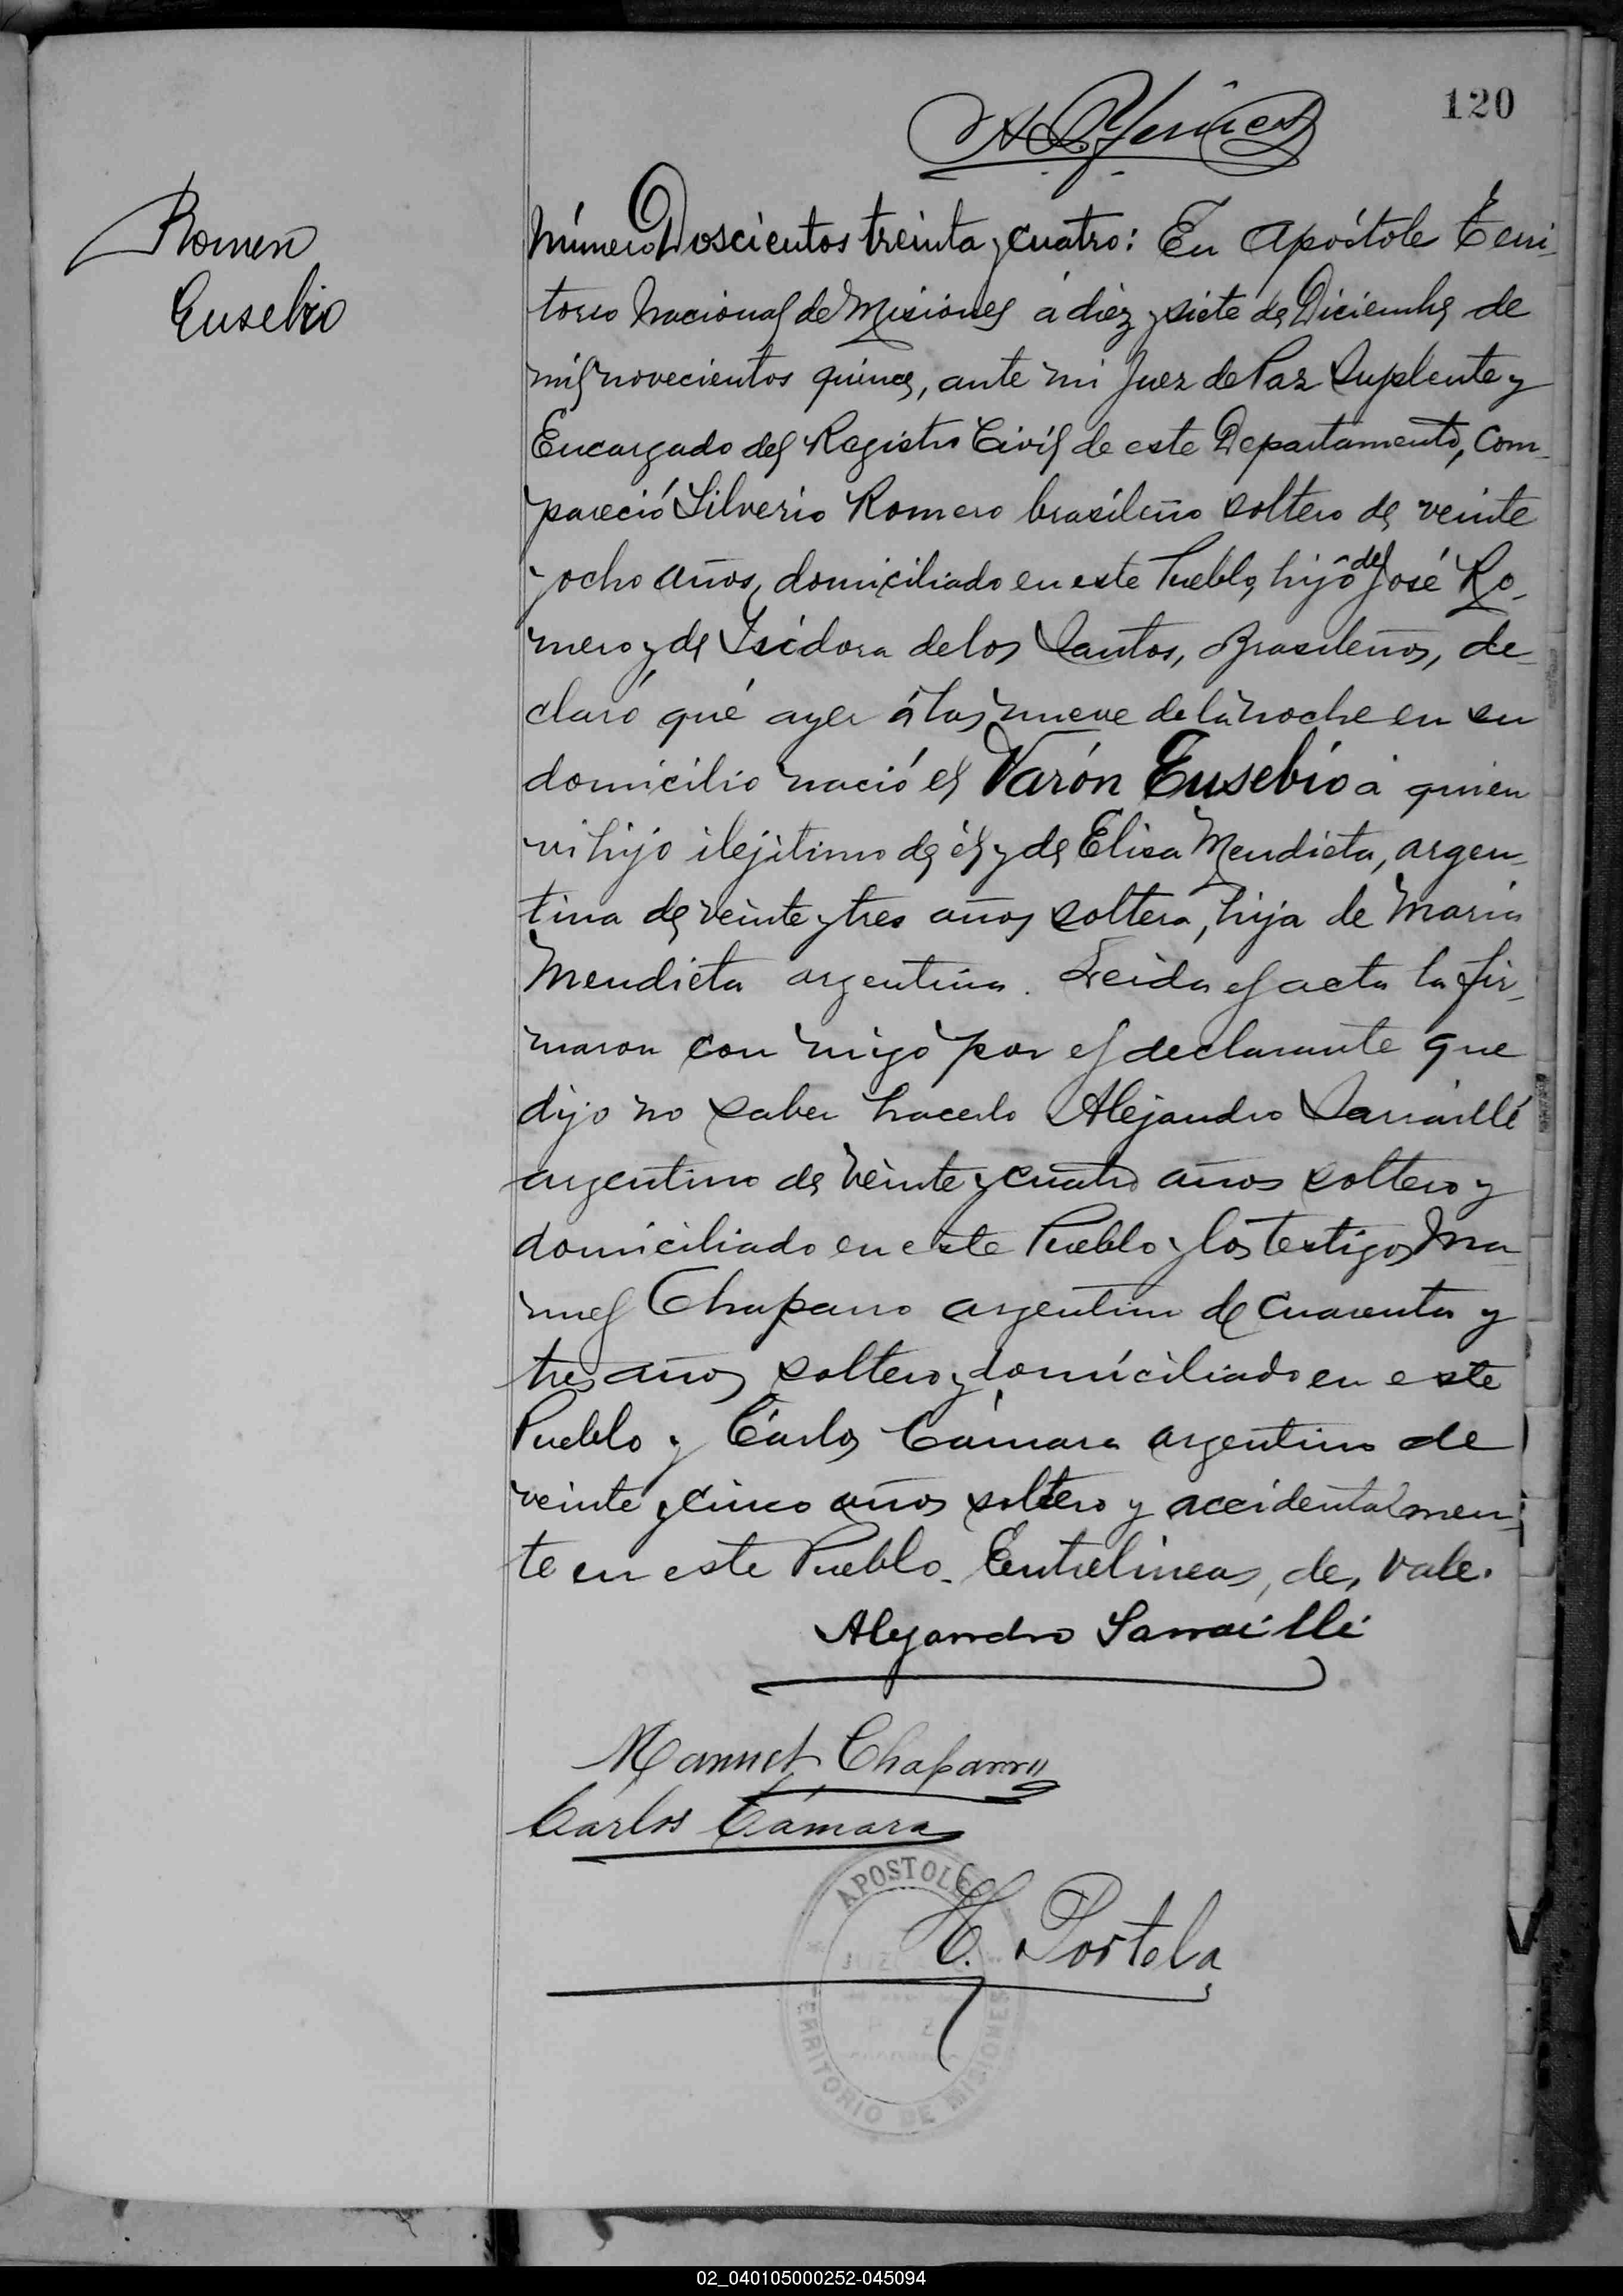 120
Romero
Eusebio
Número Doscientos treinta y cuatro: En Apóstole Terri-
torio Nacional de Misiones á diez y siete de Diciembre de
mil novecientos quince, ante mi Juez de Paz Suplente y
Encargado del Registro Civil de este Departamento, Com-
pareció Silverio Romero brasileño soltero de veinte
y ocho años, domiciliado en este Pueblo, hijo de José Ro-
mero y de Isidora de los Santos, Brasileños, de-
claró qué ayer á las nueve de la noche en su
domicilio nació el Varón Eusebio á quien
vi hijo ilejitimo de él y de Elisa Mendieta, argen-
tina de veinte y tres años soltera, hija de Maria
Mendieta argentina. Leida el acta la fir-
maron con migo por el declarante que
dijo no saber hacerlo Alejandro Sarraillé
argentino de veinte y cuatro años soltero y
domiciliado en este Pueblo y los testigos Ma-
nuel Chaparro argentino de cuarenta y
tres años soltero y domiciliado en este
Pueblo y Cárlos Cámara argentino de
veinte y cinco años soltero y accidentalmen-
te en este Pueblo. Entrelineas, de, vale.
Alejandro Sarraillé
Manuel Chaparro
Cárlos Cámara
APOSTOLES
Portela
TERRITORIO DE MISIONES
02_040105000252-045094